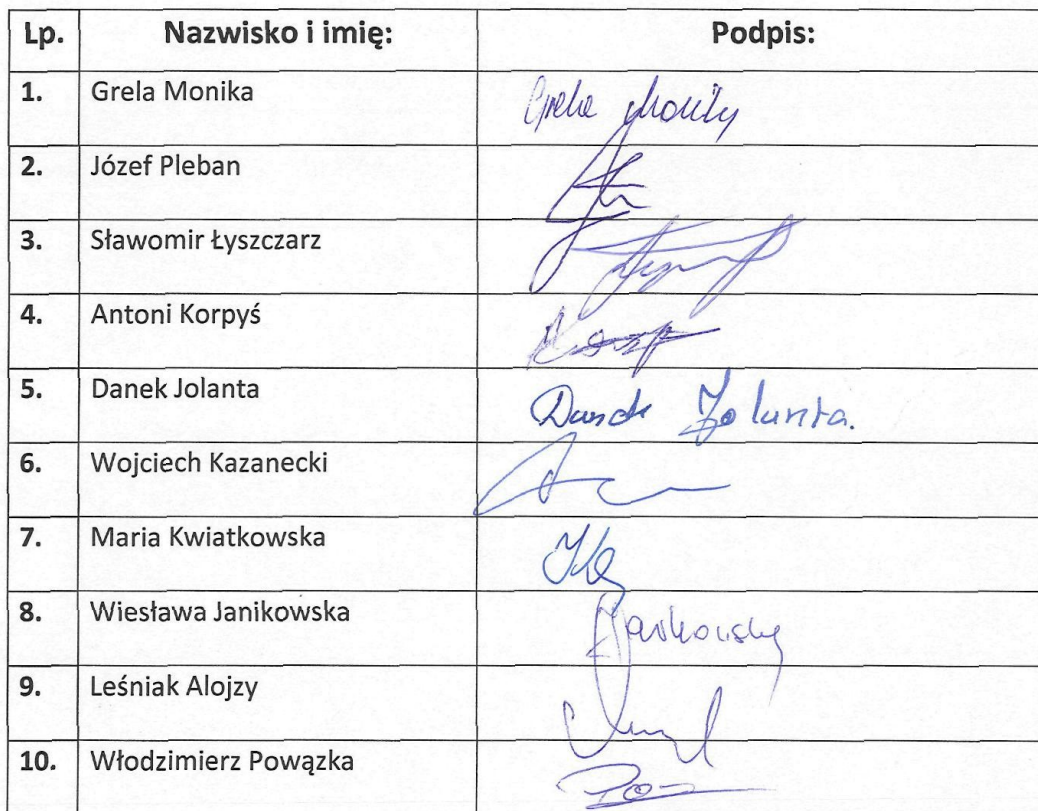 Lp. Nazwisko i imię: Podpis:
1. Grela Monika Grela Monika
2. Józef Pleban
3. Sławomir Łyszczarz
4. Antoni Korpyś
5. Danek Jolanta Danek Jolanta.
6. Wojciech Kazanecki
7. Maria Kwiatkowska
8. Wiesława Janikowska
9. Leśniak Alojzy
10. Włodzimierz Powązka